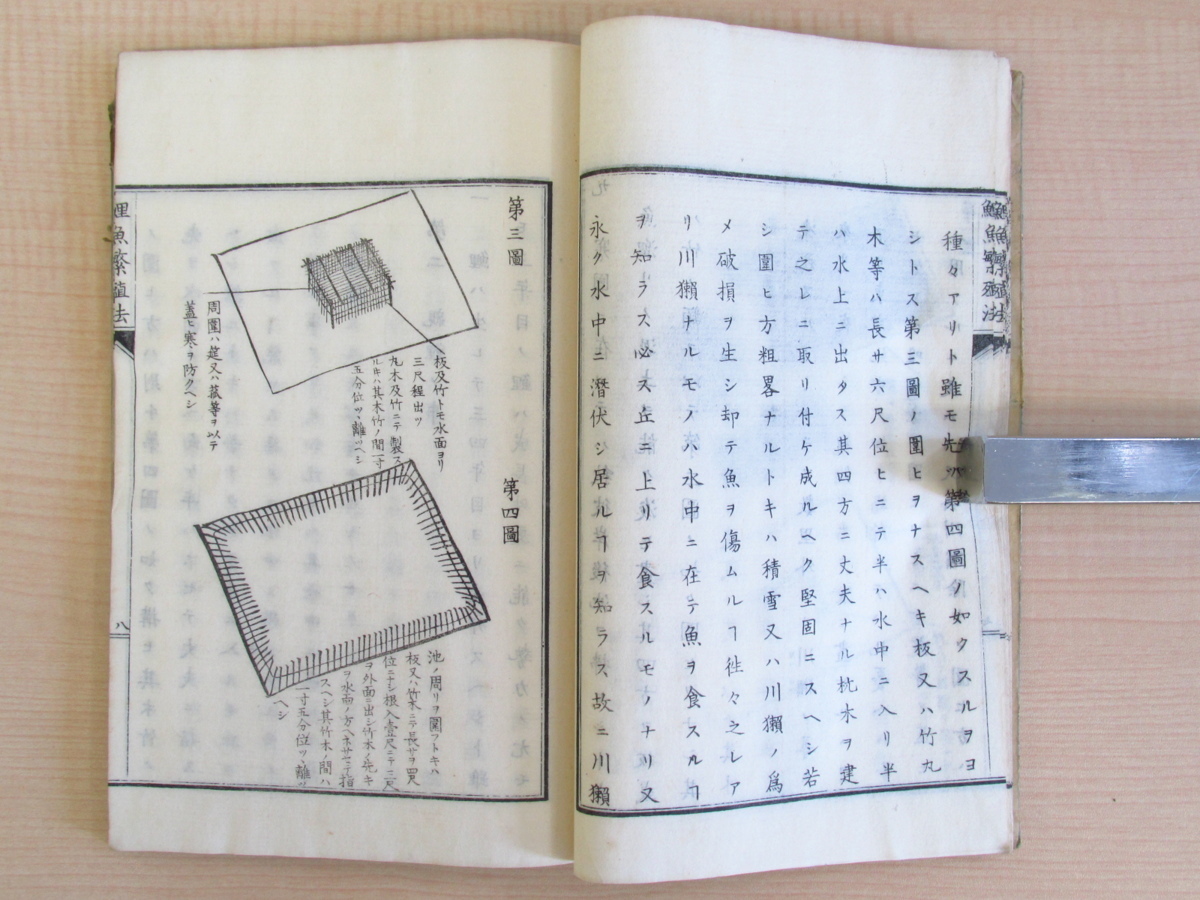 種々アリト雖モ先ハ第四圖ノ如クスルヲヨ
シトス第三圖ノ圍ヒヲナスヘキ板又ハ竹丸
木等ハ長サ六尺位ヒニテ半ハ水中ニ入リ半
ハ水上ニ出タス其四方ニ丈夫ナル杭木ヲ建
テ之レニ取リ付ケ成ルヘク堅固ニスヘシ若
シ圍ヒ方粗畧ナルトキハ積雪又ハ川獺ノ爲
メ破損ヲ生シ却テ魚ヲ傷ムルヿ徃々之レア
リ川獺ナルモノハ水中ニ在テ魚ヲ食スルヿ
ヲ知ラス必ス丘ニ上リテ食スルモノナリ又
永ク水中ニ潜伏シ居ルヿヲ知ラス故ニ川獺
第三圖
板及竹トモ水面ヨリ
三尺程出ツ
丸木及竹ニテ製ス
ルキハ其木竹ノ間一寸
五分位ツヽ離ツヘシ
周圍ハ筵又ハ菰等ヲ以テ
蓋ヒ寒ヲ防クヘシ
第四圖
池ノ周リヲ圍フトキハ
板又ハ竹木ニテ長サヲ四尺
位ニナシ根入壹尺ニテ二尺
ヲ外面ニ出シ竹木ノ先キ
ヲ水面ノ方ヘネサセテ指
スヘシ其竹木ノ間ハ
一寸五分位ツヽ離ツ
ヘシ
鯉魚繁殖法
八